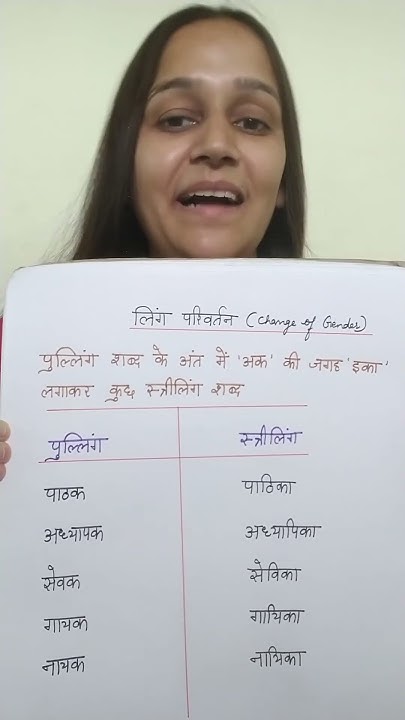 लिंग परिवर्तन (Change of Gender)
पुल्लिंग शब्द के अंत में 'अक' की जगह 'इका'
लगाकर कुछ स्त्रीलिंग शब्द
पुल्लिंग स्त्रीलिंग
पाठक पाठिका
अध्यापक अध्यापिका
सेवक सेविका
गायक गायिका
नायक नायिका